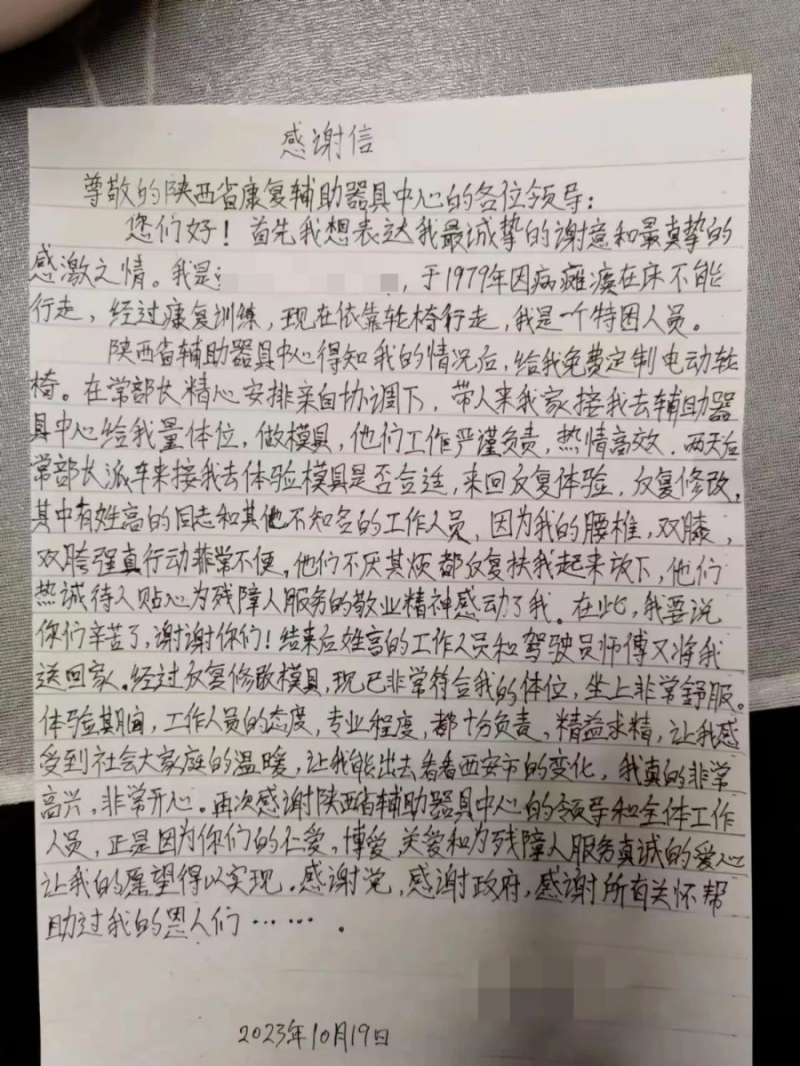 感谢信
尊敬的陕西省康复辅助器具中心的各位领导：
您们好！首先我想表达我最诚挚的谢意和最真挚的
感激之情。我是，于1979年因病瘫痪在床不能
行走，经过康复训练，现在依靠轮椅行走，我是一个特困人员。
陕西省辅助器具中心得知我的情况后，给我免费定制电动轮
椅。在常部长精心安排亲自协调下，带人来我家接我去辅助器
具中心给我量体位，做模具，他们工作严谨负责，热情高效．两天后
常部长派车来接我去体验模具是否合适，来回反复体验，反复修改，
其中有姓高的同志和其他不知名的工作人员，因为我的腰椎，双膝，
双胯强直行动非常不便，他们不厌其烦都反复扶我起来放下，他们
热诚待人贴心为残障人服务的敬业精神感动了我。在此，我要说
你们辛苦了，谢谢你们！结束后姓高的工作人员和驾驶员师傅又将我
送回家。经过反复修改模具，现已非常符合我的体位，坐上非常舒服。
体验其间，工作人员的态度，专业程度，都十分负责，精益求精，让我感
受到社会大家庭的温暖，让我能出去看看西安市的变化，我真的非常
高兴，非常开心。再次感谢陕西省辅助器具中心的领导和全体工作
人员，正是因为你们的仁爱，博爱，关爱和为残障人服务真诚的爱心
让我的愿望得以实现。感谢党，感谢政府，感谢所有关怀帮
助过我的恩人们……。
2023年10月19日